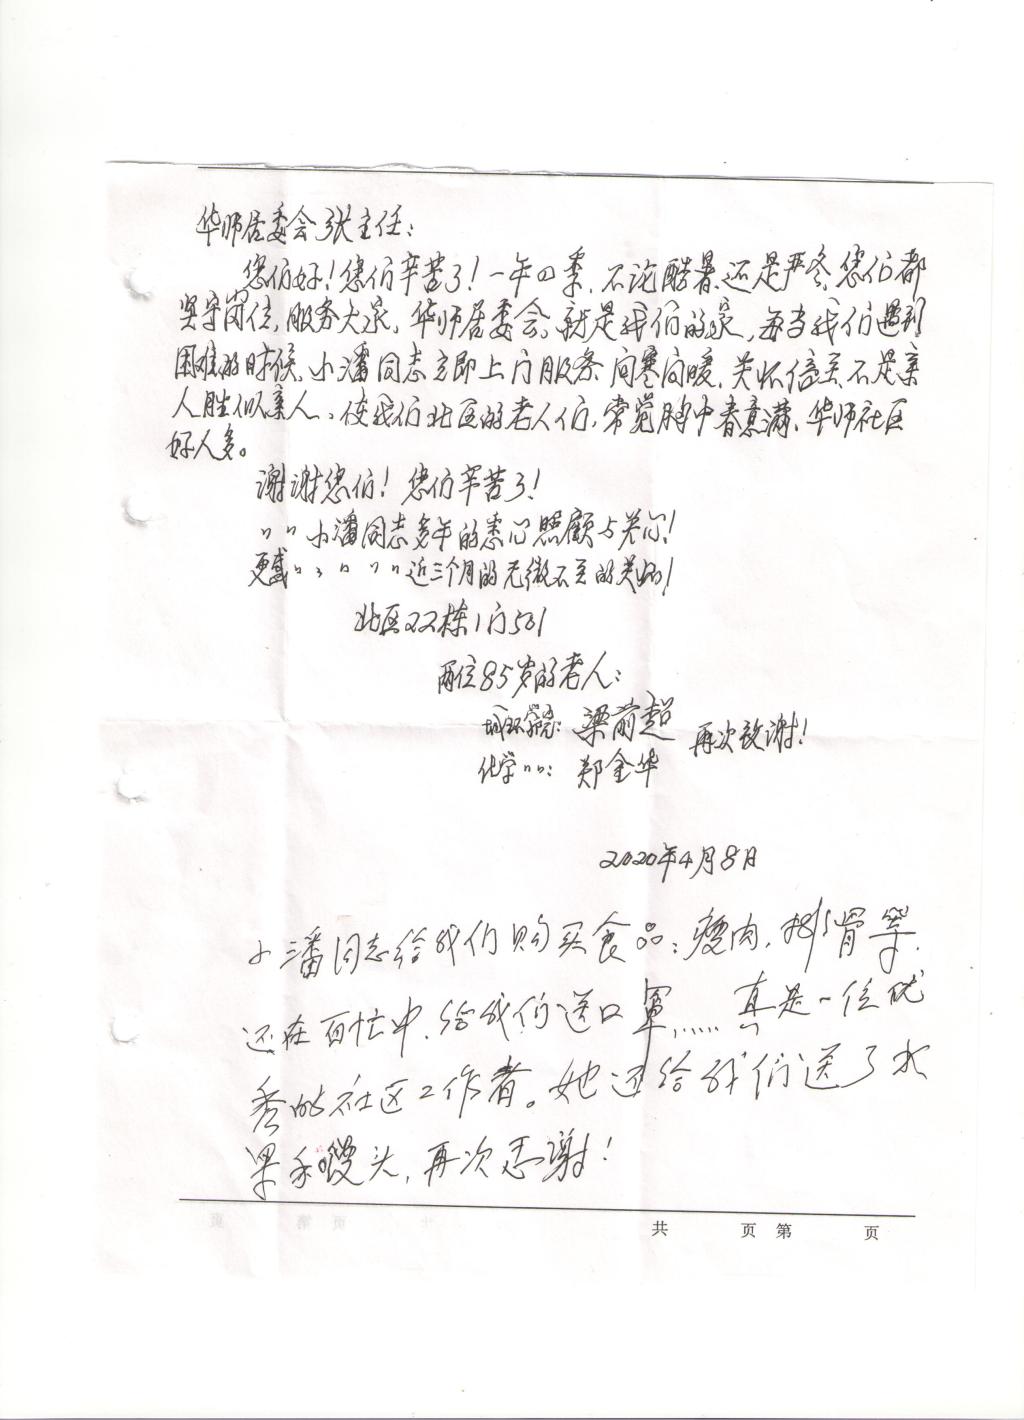 华师居委会张主任：
您们好！您们辛苦了！一年四季，不论酷暑、还是严冬，您们都
坚守岗位，服务大家，华师居委会，就是我们的家，每当我们遇到
困难的时候，小潘同志立即上门服务，问寒问暖，关怀倍至，不是亲
人胜似亲人、使我们北区的老人们，常觉胸中春意满，华师社区
好人多。
谢谢您们！您们辛苦了！
〃〃小潘同志多年的悉心照顾与关心！
更感〃〃〃〃〃近三个月的无微不至的关怀！
北区22栋1门501
两位85岁的老人：
城环学院：梁前超
再次致谢！
化学〃〃：郑金华
2020年4月8日
小潘同志给我们购买食品：瘦肉，排骨等，
还在百忙中，给我们送口罩，……真是一位优
秀的社区工作者。她还给我们送了水
果和馒头，再次感谢！
共 页 第 页